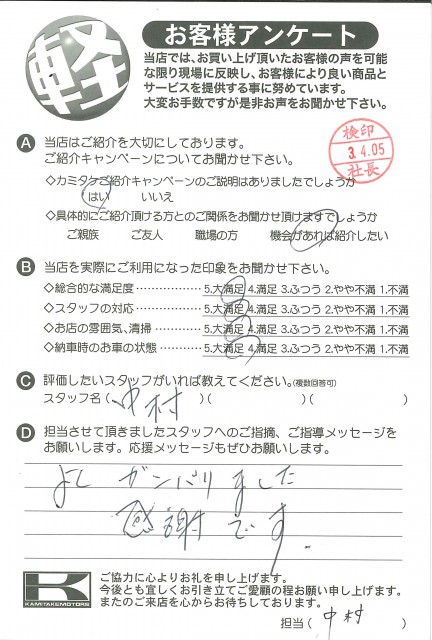 軽
お客様アンケート
当店では、お買い上げ頂いたお客様の声を可能
な限り現場に反映し、お客様により良い商品と
サービスを提供する事に努めています。
大変お手数ですが是非お声をお聞かせ下さい。
検印
3.4.05
社長
A 当店はご紹介を大切にしております。
ご紹介キャンペーンについてお聞かせ下さい。
◇カミタケご紹介キャンペーンのご説明はありましたでしょうか
はい いいえ
◇具体的にご紹介頂ける方とのご関係をお聞かせ頂けますでしょうか
ご親族 ご友人 職場の方 機会があれば紹介したい
B 当店を実際にご利用になった印象をお聞かせ下さい。
◇総合的な満足度 5.大満足 4.満足 3.ふつう 2.やや不満 1.不満
◇スタッフの対応 5.大満足 4.満足 3.ふつう 2.やや不満 1.不満
◇お店の雰囲気、清掃 5.大満足 4.満足 3.ふつう 2.やや不満 1.不満
◇納車時のお車の状態 5.大満足 4.満足 3.ふつう 2.やや不満 1.不満
C 評価したいスタッフがいれば教えてください。(複数回答可)
スタッフ名(中村)( )( )
D 担当させて頂きましたスタッフへのご指摘、ご指導メッセージを
お願いします。応援メッセージもぜひお願いします。
よく ガンバリました
感謝です.
K
KAMITAKEMOTORS
ご協力に心よりお礼を申し上げます。
今後とも宜しくお引き立てご愛顧の程お願い申し上げます。
またのご来店を心からお待ちしております。
担当(中村)